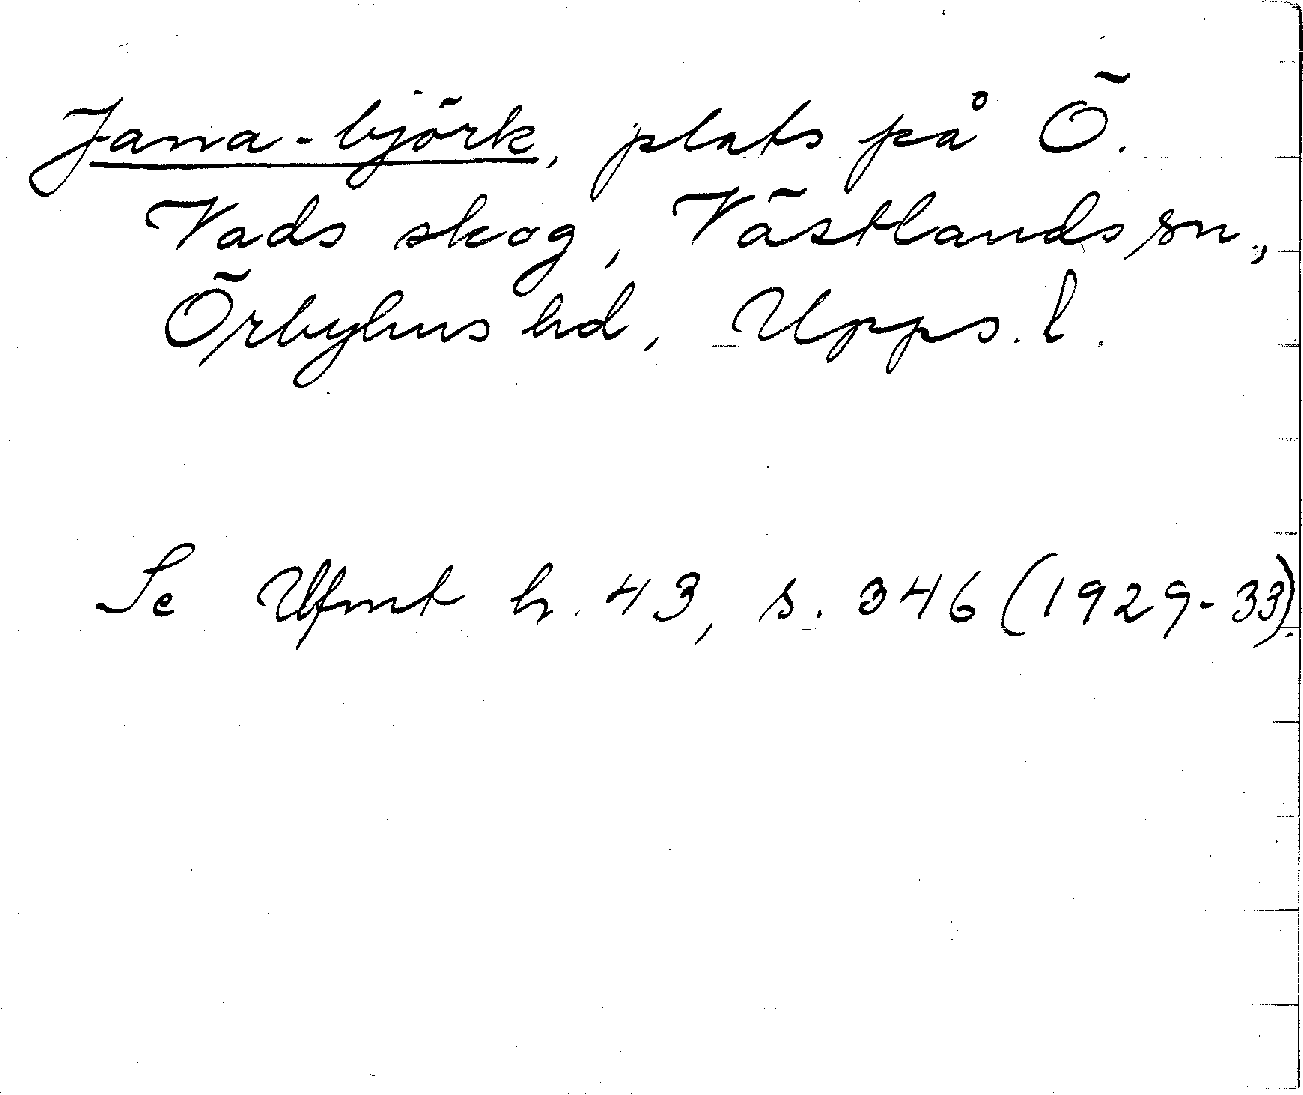 Jana-björk, plats på Ö.
Vads skog, Västlands sn.,
Örbyhus hd, Upps. l.
Se Ufmt h. 43, s. 346 (1929-33).